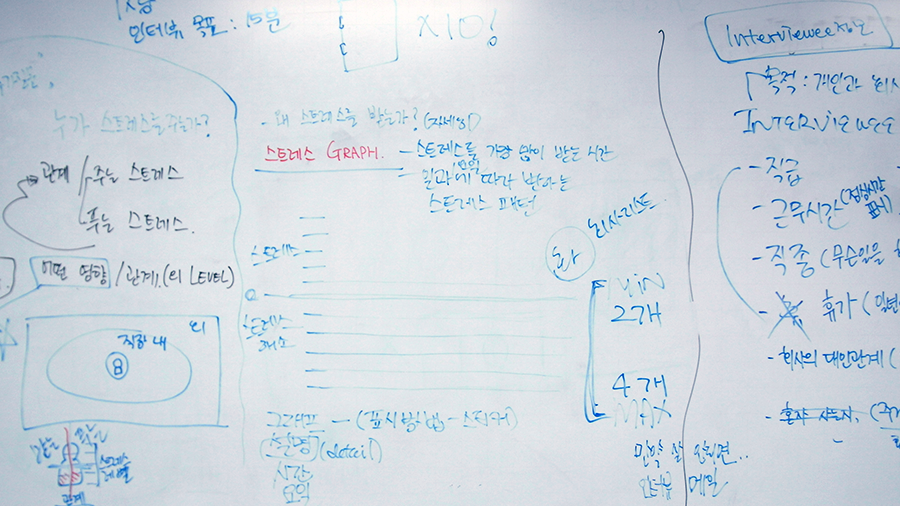 인터뷰 목표 : 15분
X10!
누가 스트레스를 주는가?
관계
주는 스트레스
푸는 스트레스.
어떤 영향 / 관계.(의 LEVEL)
직장 내
외
8
관계
- 왜 스트레스를 받는가? (자세히)
스트레스 GRAPH.
- 스트레스를 가장 많이 받는 시간
요일
일과에 따라 변하는
스트레스 패턴
스트레스
0
스트레스
해소
그래프 — (표시방법 - 스티커)
(설명) (detail)
시간
요일
화
회사 리스트.
MIN
2개
4개
MAX
만약 잘 안되면..
인터뷰 메일
Interviewee 정보
목적 : 개인과 회사
INTERVIEWEE
- 직급
- 근무시간 (점심시간
- 직종 (무슨일을
- 휴가 (일년
- 회사의 대인관계 (
- 혼자 사는지, (주